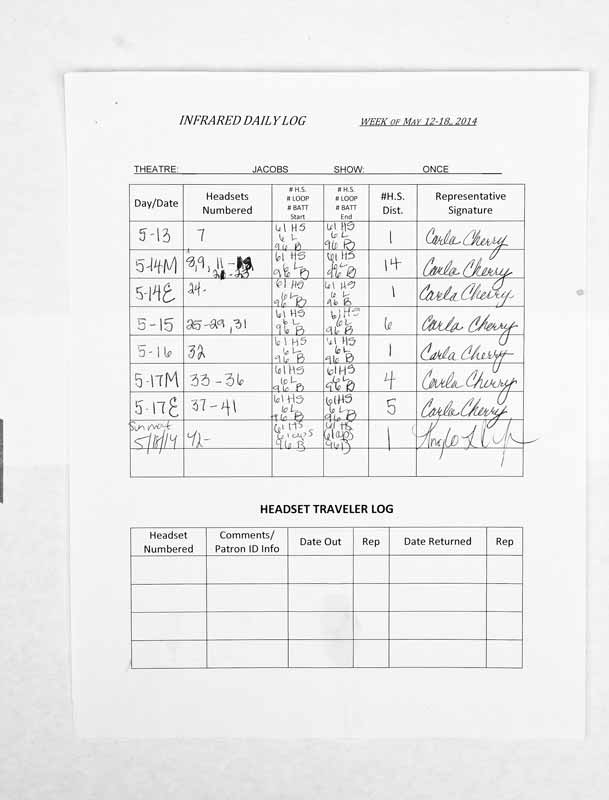 INFRARED DAILY LOG WEEK OF MAY 12-18, 2014
THEATRE: JACOBS SHOW: ONCE
Day/Date Headsets Numbered # H.S. # LOOP # BATT Start # H.S. # LOOP # BATT End #H.S. Dist. Representative Signature
5-13 7 61 HS 6 L 96 B 61 HS 6 L 96 B 1 Carla Cherry
5-14M 8,9, 11- 61 HS 6 L 96 B 61 HS 6 L 96 B 14 Carla Cherry
5-14E 24- 61 HS 6 L 96 B 61 HS 6 L 96 B 1 Carla Cherry
5-15 25-29, 31 61 HS 6 L 96 B 61 HS 6 L 96 B 6 Carla Cherry
5-16 32 61 HS 6 L 96 B 61 HS 6 L 96 B 1 Carla Cherry
5-17M 33-36 61 HS 6 L 96 B 61 HS 6 L 96 B 4 Carla Cherry
5-17E 37-41 61 HS 6 L 96 B 61 HS 6 L 96 B 5 Carla Cherry
Sun mat 5/18/14 42- 61 HS 6 loops 96 B 61 HS 96 B 1
HEADSET TRAVELER LOG
Headset Numbered Comments/ Patron ID Info Date Out Rep Date Returned Rep